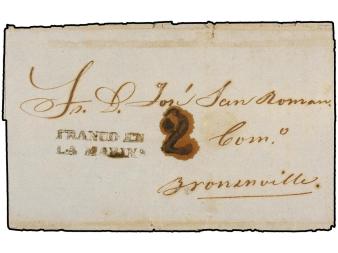 Sr. D. José San Roman
FRANCO EN
LA MARINA
2
Com.º
Bronsnville.